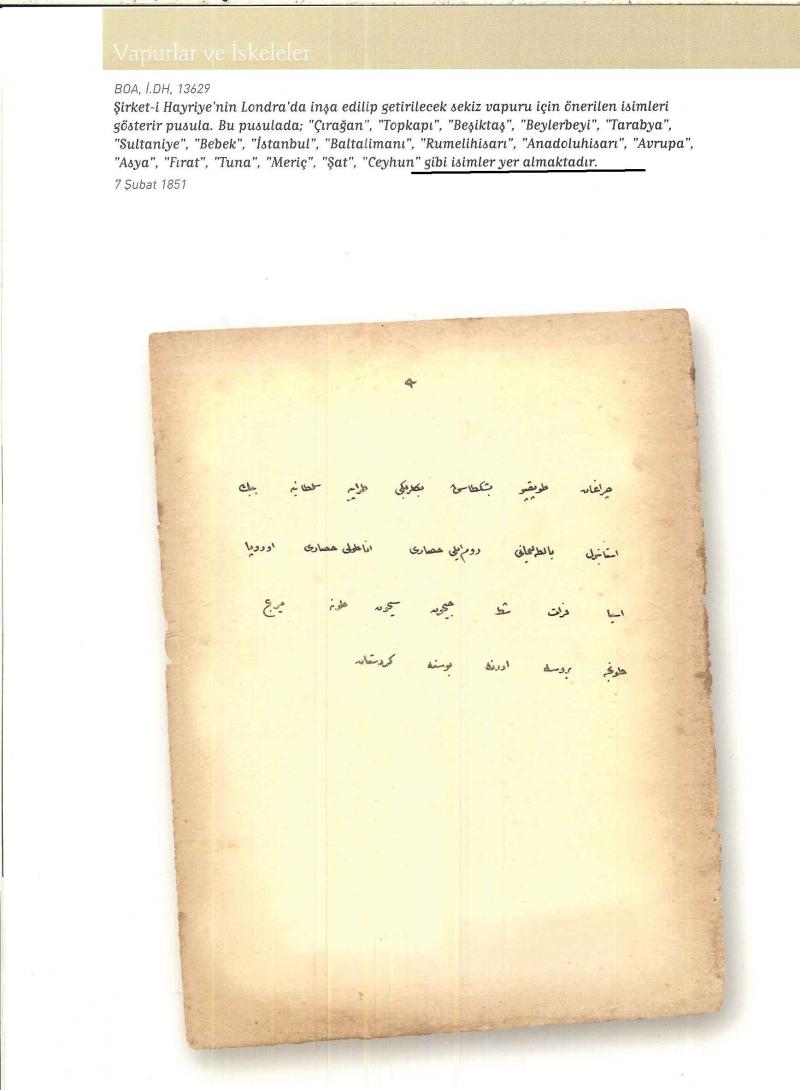 Vapurlar ve İskeleler
BOA, İ.DH, 13629
Şirket-i Hayriye'nin Londra'da inşa edilip getirilecek sekiz vapuru için önerilen isimleri
gösterir pusula. Bu pusulada; "Çırağan", "Topkapı", "Beşiktaş", "Beylerbeyi", "Tarabya",
"Sultaniye", "Bebek", "İstanbul", "Baltalimanı", "Rumelihisarı", "Anadoluhisarı", "Avrupa",
"Asya", "Fırat", "Tuna", "Meriç", "Şat", "Ceyhun" gibi isimler yer almaktadır.
7 Şubat 1851
چراغان طوپقپو بشكطاش بكلربكی طرابیه سلطانیه ببك
استانبول بالطه لیمانی روم ایلی حصاری اناطولی حصاری اوروپا
اسیا فرات شط جیحون سیحون طونه مریج
طونجه بروسه ادرنه بوسنه كردستان